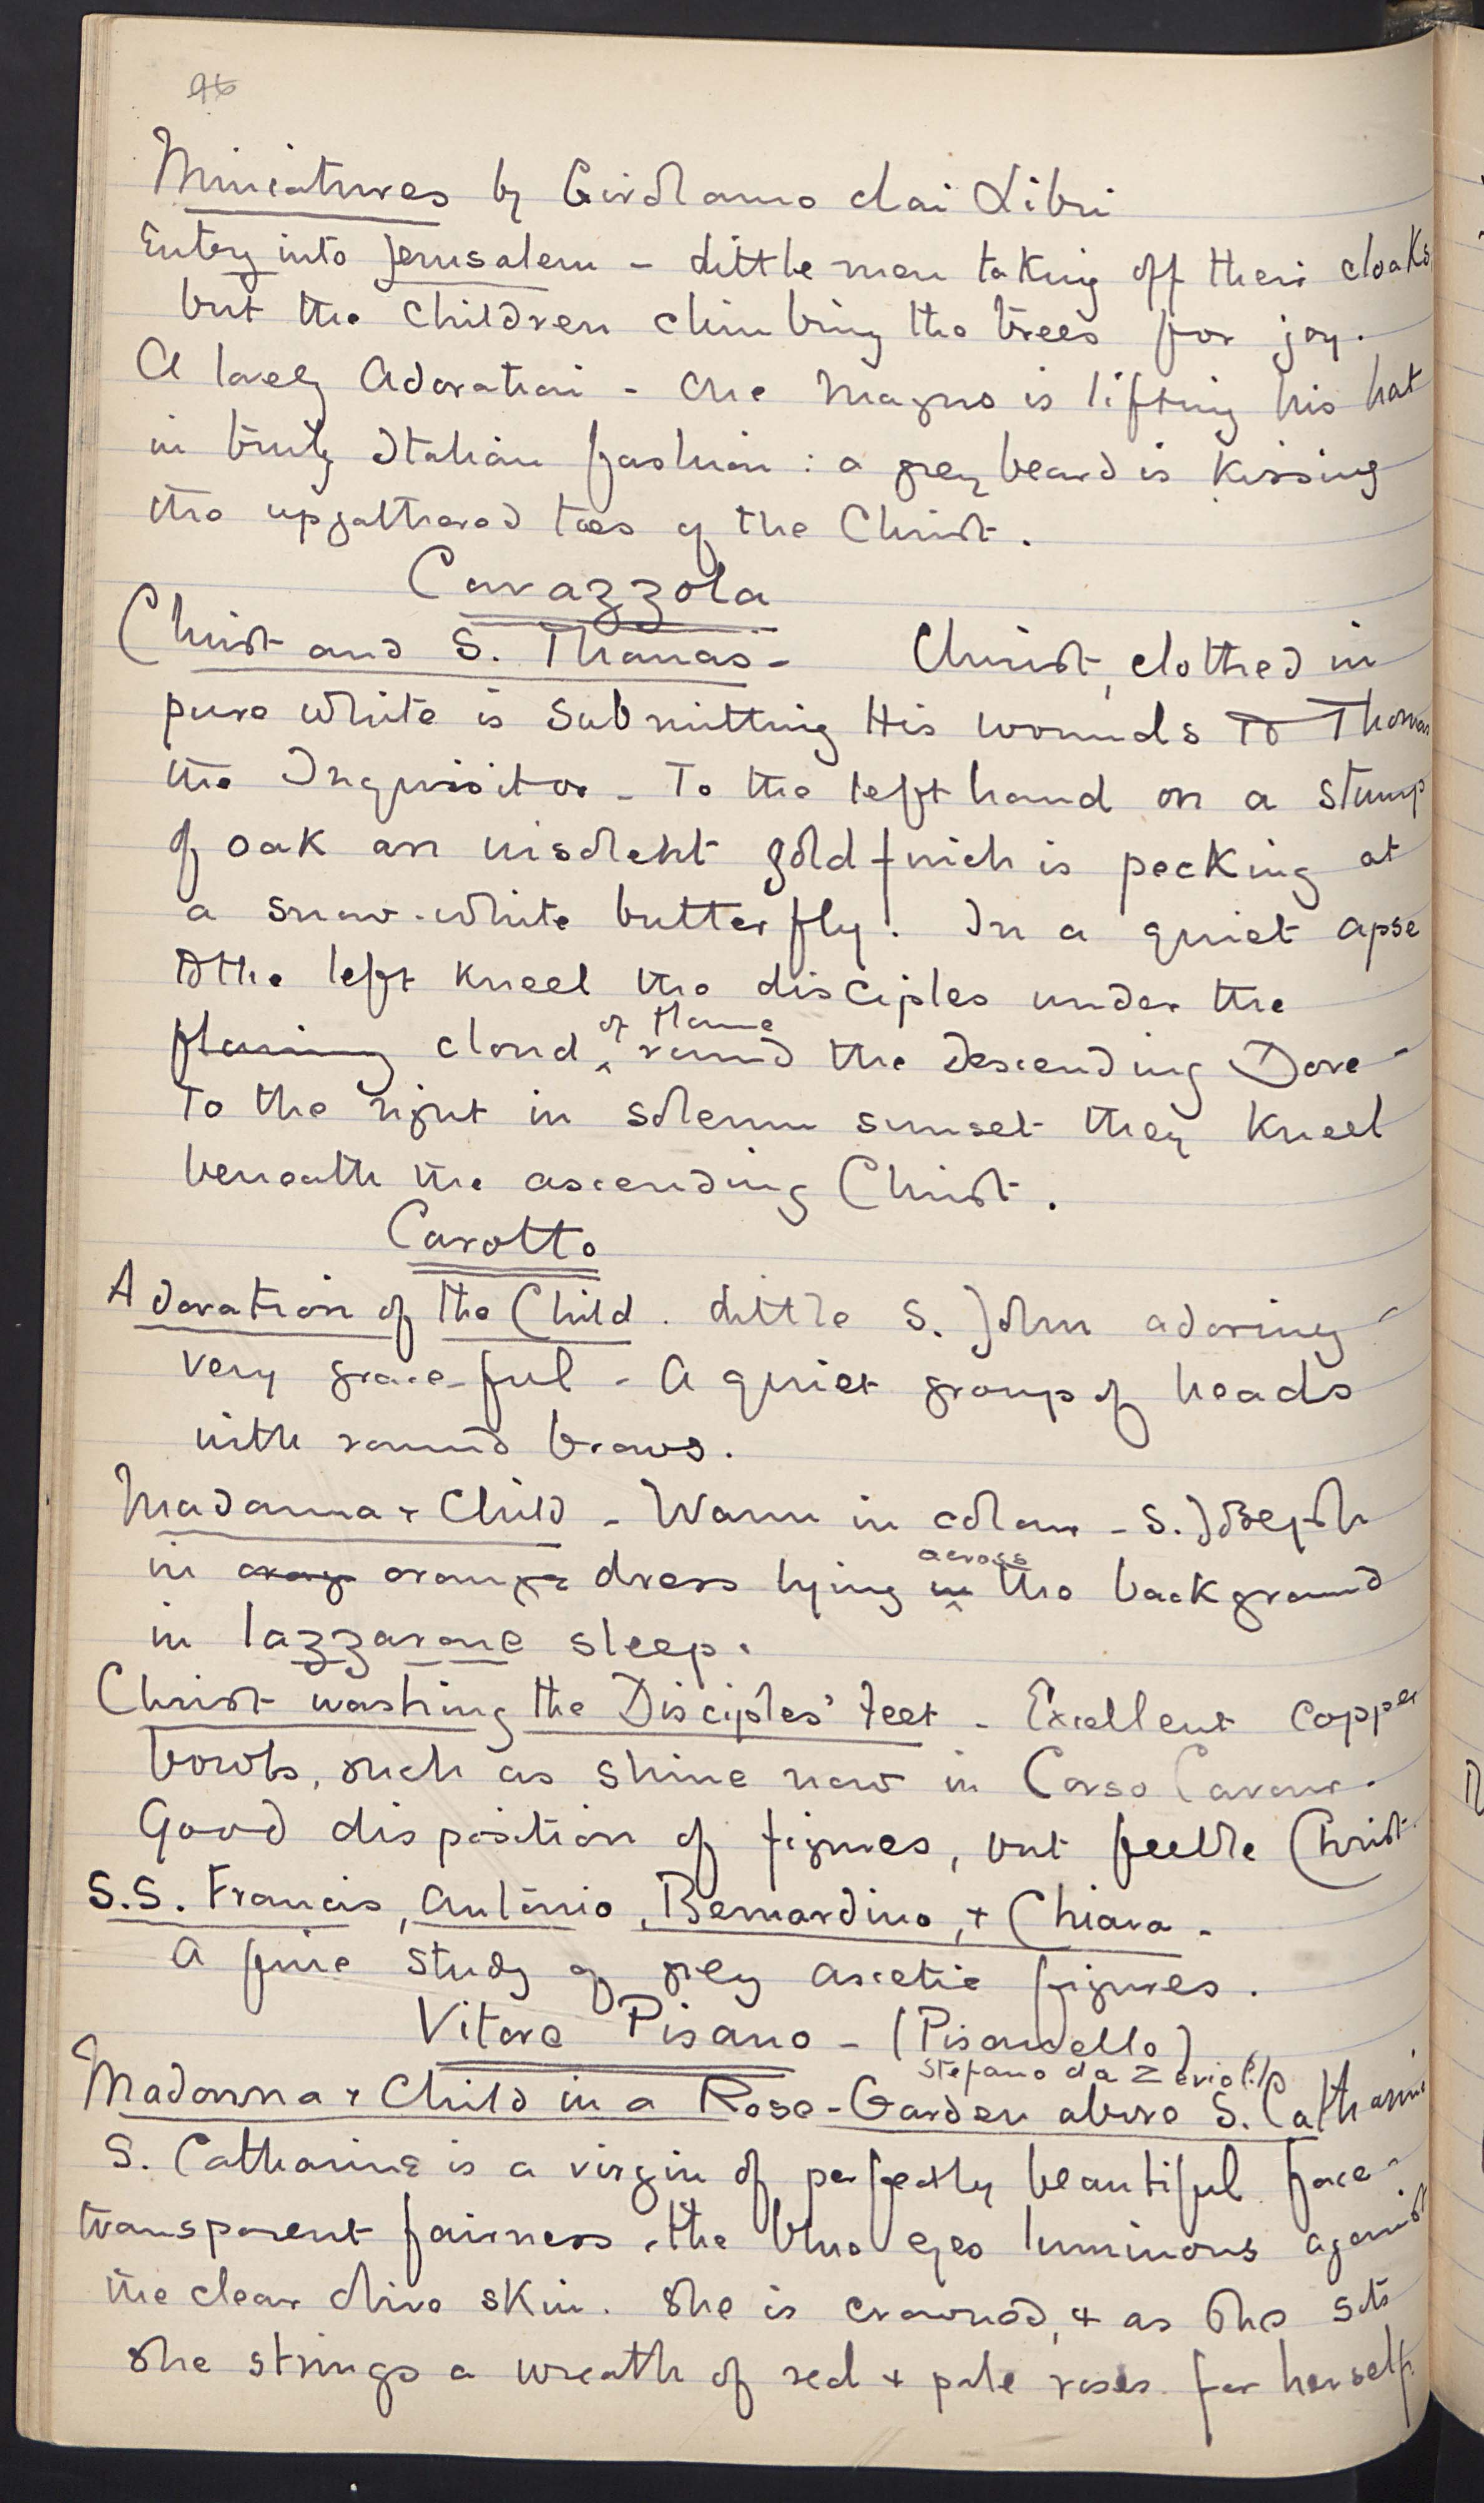 96
Miniatures by Girolamo dai Libri
Entry into Jerusalem – Little men taking off their cloaks,
but the children climbing the trees for joy.
A lovely Adoration – One Magus is lifting his hat
in truly Italian fashion : a greybeard is kissing
the upgathered toes of the Christ.
Cavazzola
Christ and S. Thomas – Christ, clothed in
pure white is submitting His wounds to Thomas
the Inquisitor – To the left hand on a stump
of oak an insolent goldfinch is pecking at
a snow-white butterfly! In a quiet apse
to the left kneel the disciples under the
of flame
flaming cloud ^ round the Descending Dove –
To the right in solemn sunset they kneel
beneath the ascending Christ.
Carotto
Adoration of the Child. Little S. John adoring –
very graceful – A quiet group of heads
with round brows.
Madonna + Child – Warm in colour – S. Joseph
across
in orang orange dress lying in ^ the background
in lazzarone sleep.
Christ washing the Disciples' feet – Excellent copper
bowls, such as shine now in Corso Cavour.
Good disposition of figures, but feeble Christ.
S.S. Francis, Antonio, Bernardino, + Chiara –
A fine study of grey ascetic figures.
Vitore Pisano – (Pisanello)
Stefano da Zevio (?)
Madonna + Child in a Rose-Garden above S. Catharine
S. Catharine is a virgin of perfectly beautiful face –
transparent fairness, the blue eyes luminous against
the clear olive skin. She is crowned, + as she sits
she strings a wreath of red + pale roses for herself.